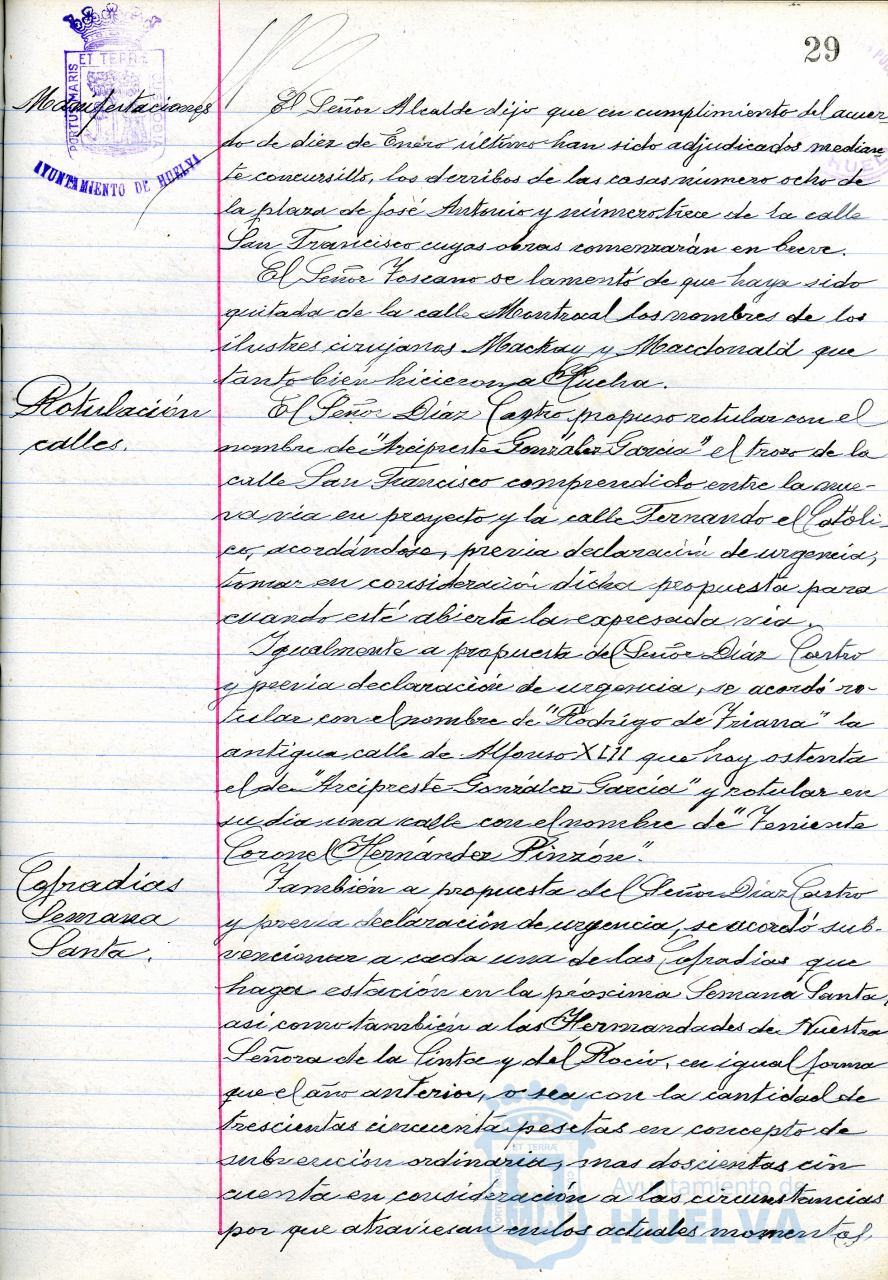 29
PORTUS MARIS ET TERRÆ CUSTODIA
AYUNTAMIENTO DE HUELVA
HUELVA
Manifestaciones
El Señor Alcalde dijo que en cumplimiento del acuer-
do de diez de Enero último han sido adjudicados median
te concursillo, los derribos de las casas número ocho de
la plaza de José Antonio y número trece de la calle
San Francisco cuyas obras comenzarán en breve.
El Señor Toscano se lamentó de que haya sido
quitada de la calle Montrocal los nombres de los
ilustres cirujanos Mackay y Macdonald que
tanto bien hicieron a
Rotulación
calles.
El Señor Díaz Castro propuso rotular con el
nombre de "Arcipreste González García" el trozo de la
calle San Francisco comprendido entre la nue-
va vía en proyecto y la calle Fernando el Católi-
co, acordándose, previa declaración de urgencia,
tomar en consideración dicha propuesta para
cuando esté abierta la expresada vía.
Igualmente a propuesta del Señor Díaz Castro
y previa declaración de urgencia, se acordó ro-
tular con el nombre de "Rodrigo de Triana" la
antigua calle de Alfonso XIII que hoy ostenta
el de "Arcipreste González García" y rotular en
su día una calle con el nombre de "Teniente
Coronel Hernández Pinzón".
Cofradías
Semana
Santa.
También a propuesta del Señor Díaz Castro
y previa declaración de urgencia, se acordó sub-
vencionar a cada una de las Cofradías que
haga estación en la próxima Semana Santa,
así como también a las Hermandades de Nuestra
Señora de la Cinta y del Rocío, en igual forma
que el año anterior, o sea con la cantidad de
trescientas cincuenta pesetas en concepto de
subvención ordinaria, mas doscientas cin
cuenta en consideración a las circunstancias
por que atraviesan en los actuales momentos,
ET TERRÆ
Ayuntamiento de
HUELVA